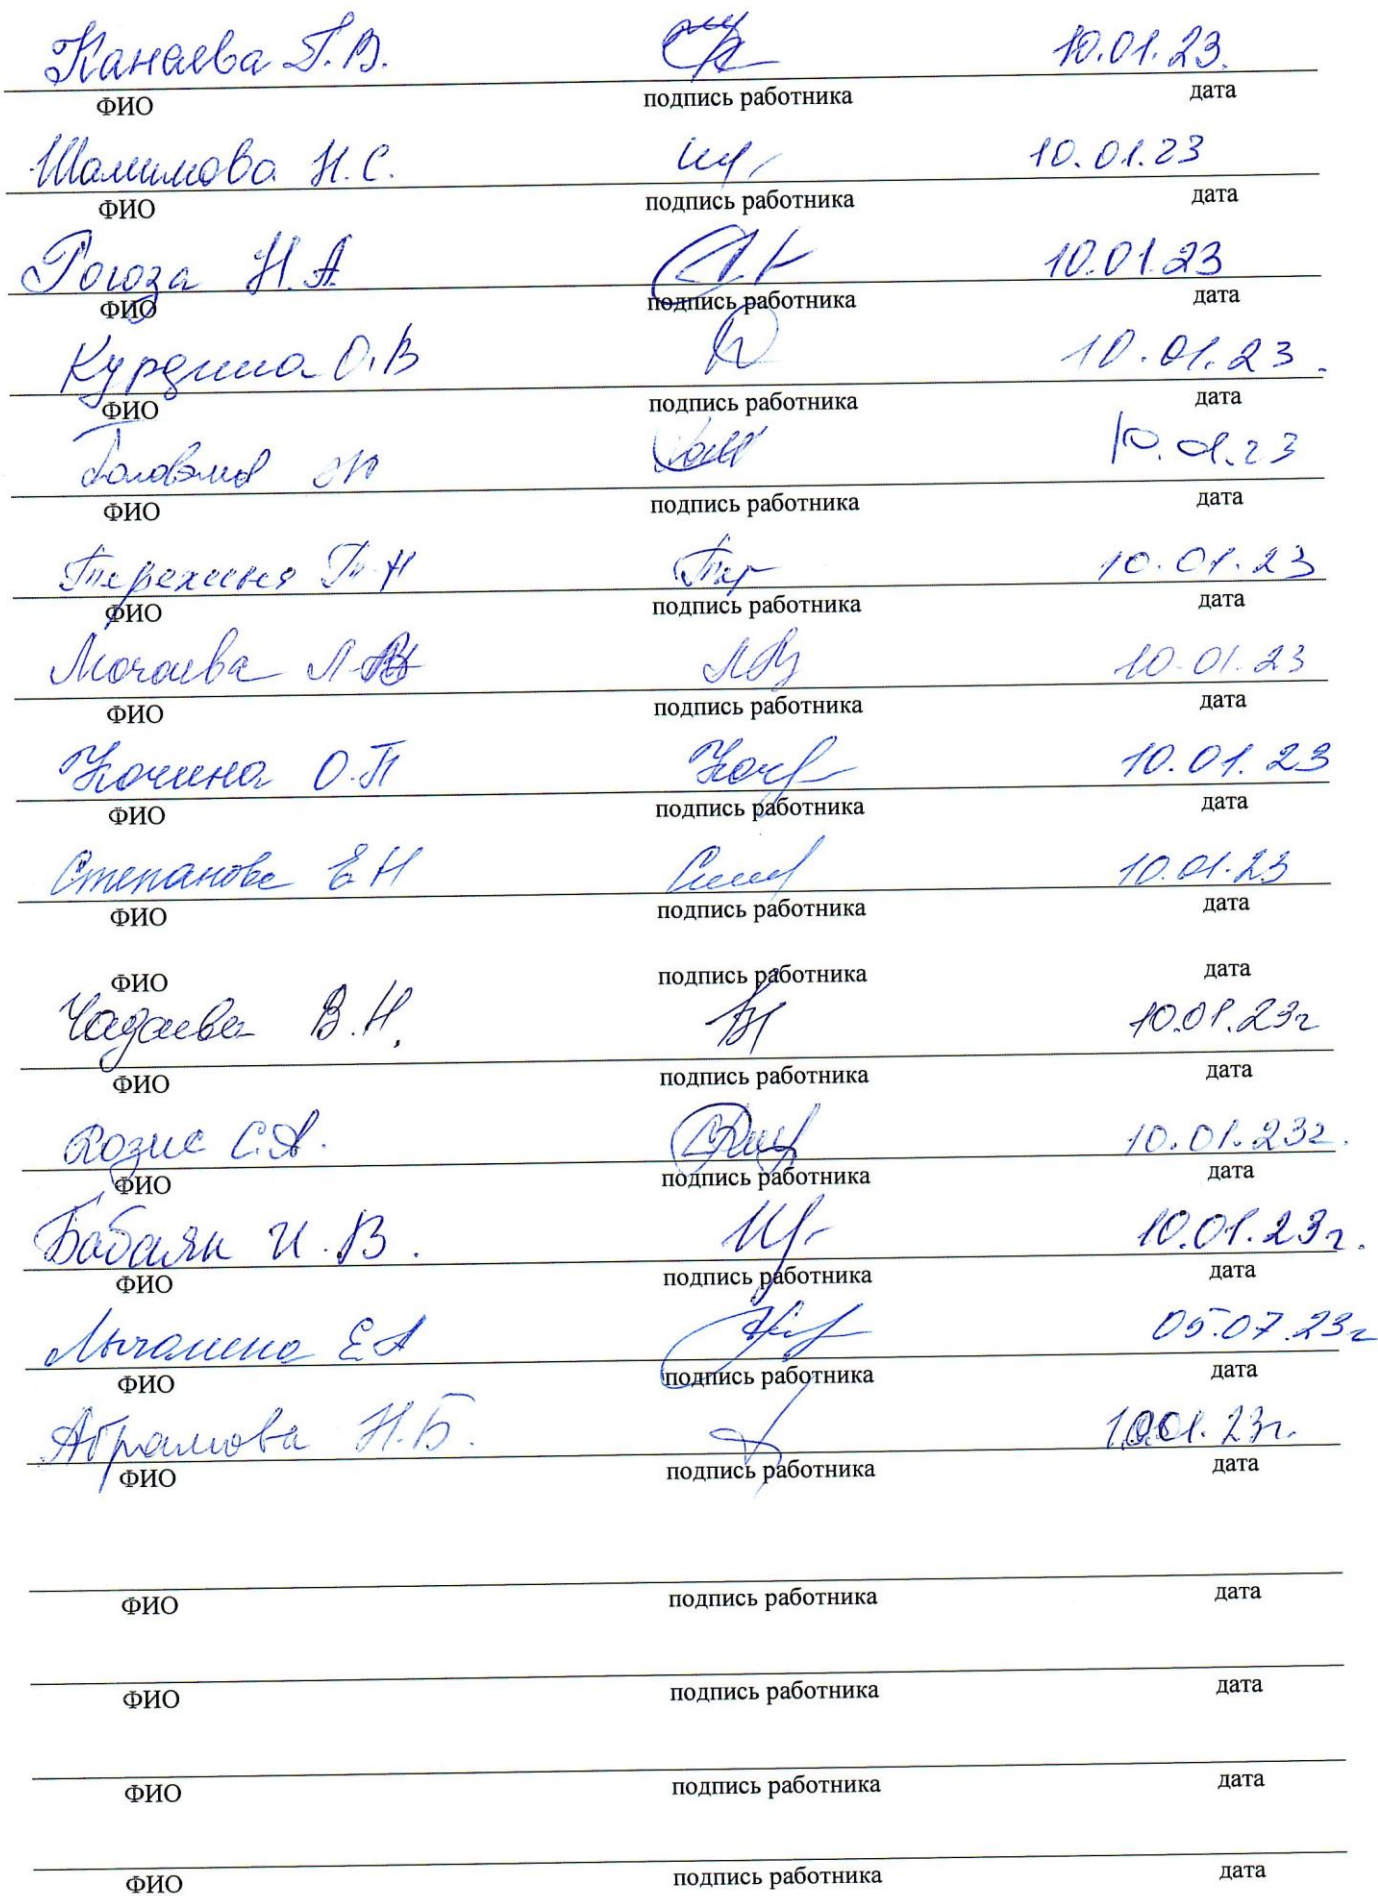 Канаева Г.В. 10.01.23.
ФИО подпись работника дата
Шалимова Н.С. 10.01.23
ФИО подпись работника дата
Рогоза Н.А. 10.01.23
ФИО подпись работника дата
Курдина О.В 10.01.23.
ФИО подпись работника дата
10.01.23
ФИО подпись работника дата
Терехина Т.Н 10.01.23
ФИО подпись работника дата
Мочаева Л. 10.01.23
ФИО подпись работника дата
Кочина О.П Коч 10.01.23
ФИО подпись работника дата
Степанова Е Н 10.01.23
ФИО подпись работника дата
ФИО подпись работника дата
Чадаева В.Н. 10.01.23г
ФИО подпись работника дата
Розис С.А. 10.01.23г.
ФИО подпись работника дата
Бабаян И.В. 10.01.23г.
ФИО подпись работника дата
Е А 05.07.23г
ФИО подпись работника дата
Абрамова Н.Б. 10.01.23г.
ФИО подпись работника дата
ФИО подпись работника дата
ФИО подпись работника дата
ФИО подпись работника дата
ФИО подпись работника дата